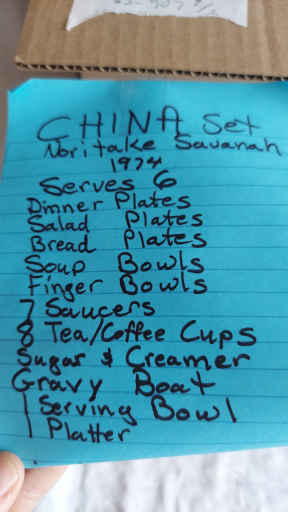 CHINA Set
Noritake Savanah
1974
Serves 6
Dinner Plates
Salad Plates
Bread Plates
Soup Bowls
Finger Bowls
7 Saucers
8 Tea/Coffee Cups
Sugar & Creamer
Gravy Boat
1 Serving Bowl
1 Platter